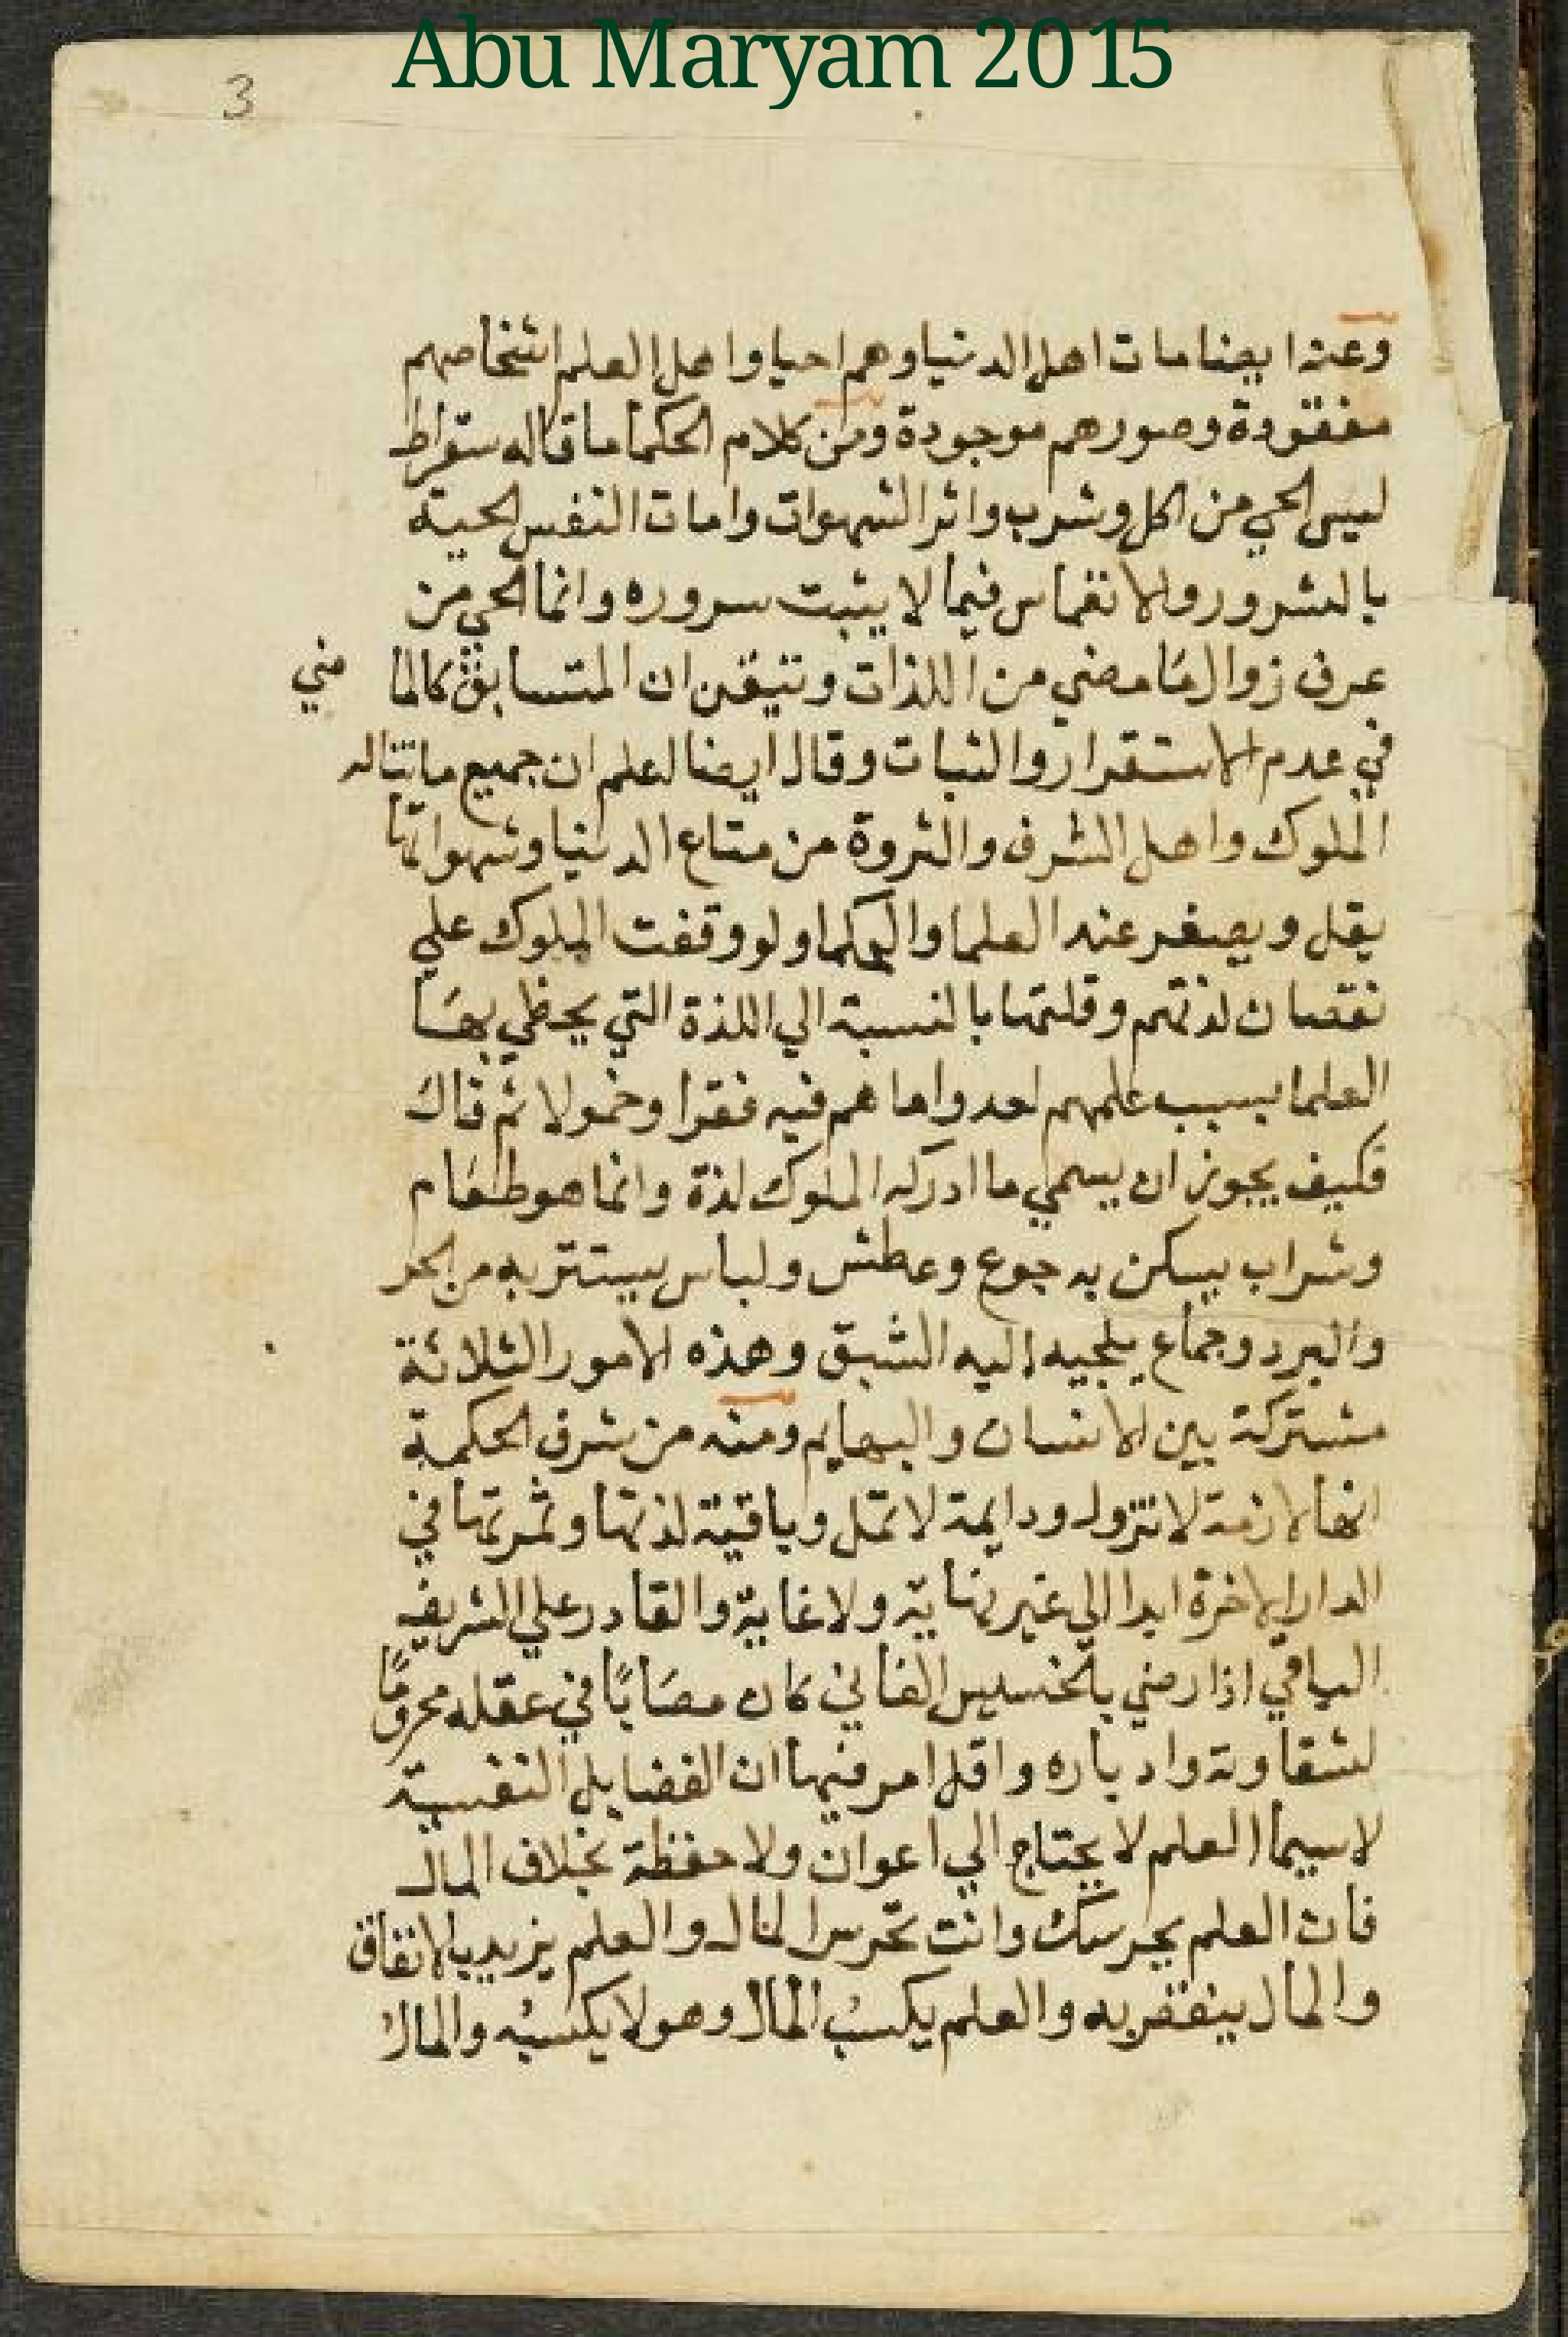 Abu Maryam 2015
3
وعنه ايضا مات اهل الدنيا وهم احيا واهل العلم اشخاصهم
مفقودة وصورهم موجودة ومن كلام الحكما ما قاله سقراط
ليس الحي من اكل وشرب واثر الشهوات وامات النفس الحية
بالشرور والانغماس فيما لا يثبت سروره وانما الحي من
عرف زوال مَا مضي من اللذات وتيقن ان المتسابق كالما ضي
في عدم الاستقرار والثبات وقال ايضا لعلم ان جميع ما تناله
الملوك واهل الشرف والثروة من متاع الدنيا وشهواتها
يقل ويصغر عند العلما والحكما ولو وقفت الملوك علي
نقصان لذتهم وقلتها بالنسبة الي اللذة التي يحظي بهَا
العلما بسبب علمهم لعدوا ما هم فيه فقرا وخمولا ثم قال
فكيف يجوز ان يسمي ما ادركه الملوك لذة وانما هو طعَام
وشراب يسكن به جوع وعطش ولباس يستتر به من الحر
والبرد وجماع يلجيه اليه الشبق وهذه الامور الثلاثة
مشتركة بين الانسان والبهايم ومنه من شرف الحكمة
انها لازمة لا تزول ودايمة لا تمل وباقية لذتها وثمرتها في
الدار الاخرة ابدا الي غير نهاية ولا غاية والقادر علي الشريف
الباقي اذا رضي بالخسيس الفاني كان مصَابًا في عقله محرومًا
لشقاوته وادباره واقل امر فيها ان الفضايل النفسية
لاسيما العلم لا يحتاج الي اعوان ولا حفظة بخلاف المال
فان العلم يحرسك وانت تحرس المال والعلم يزيد بالانفاق
والمال ينفقر به والعلم يكسبُ المال وهو لا يكسبُه والمالُ